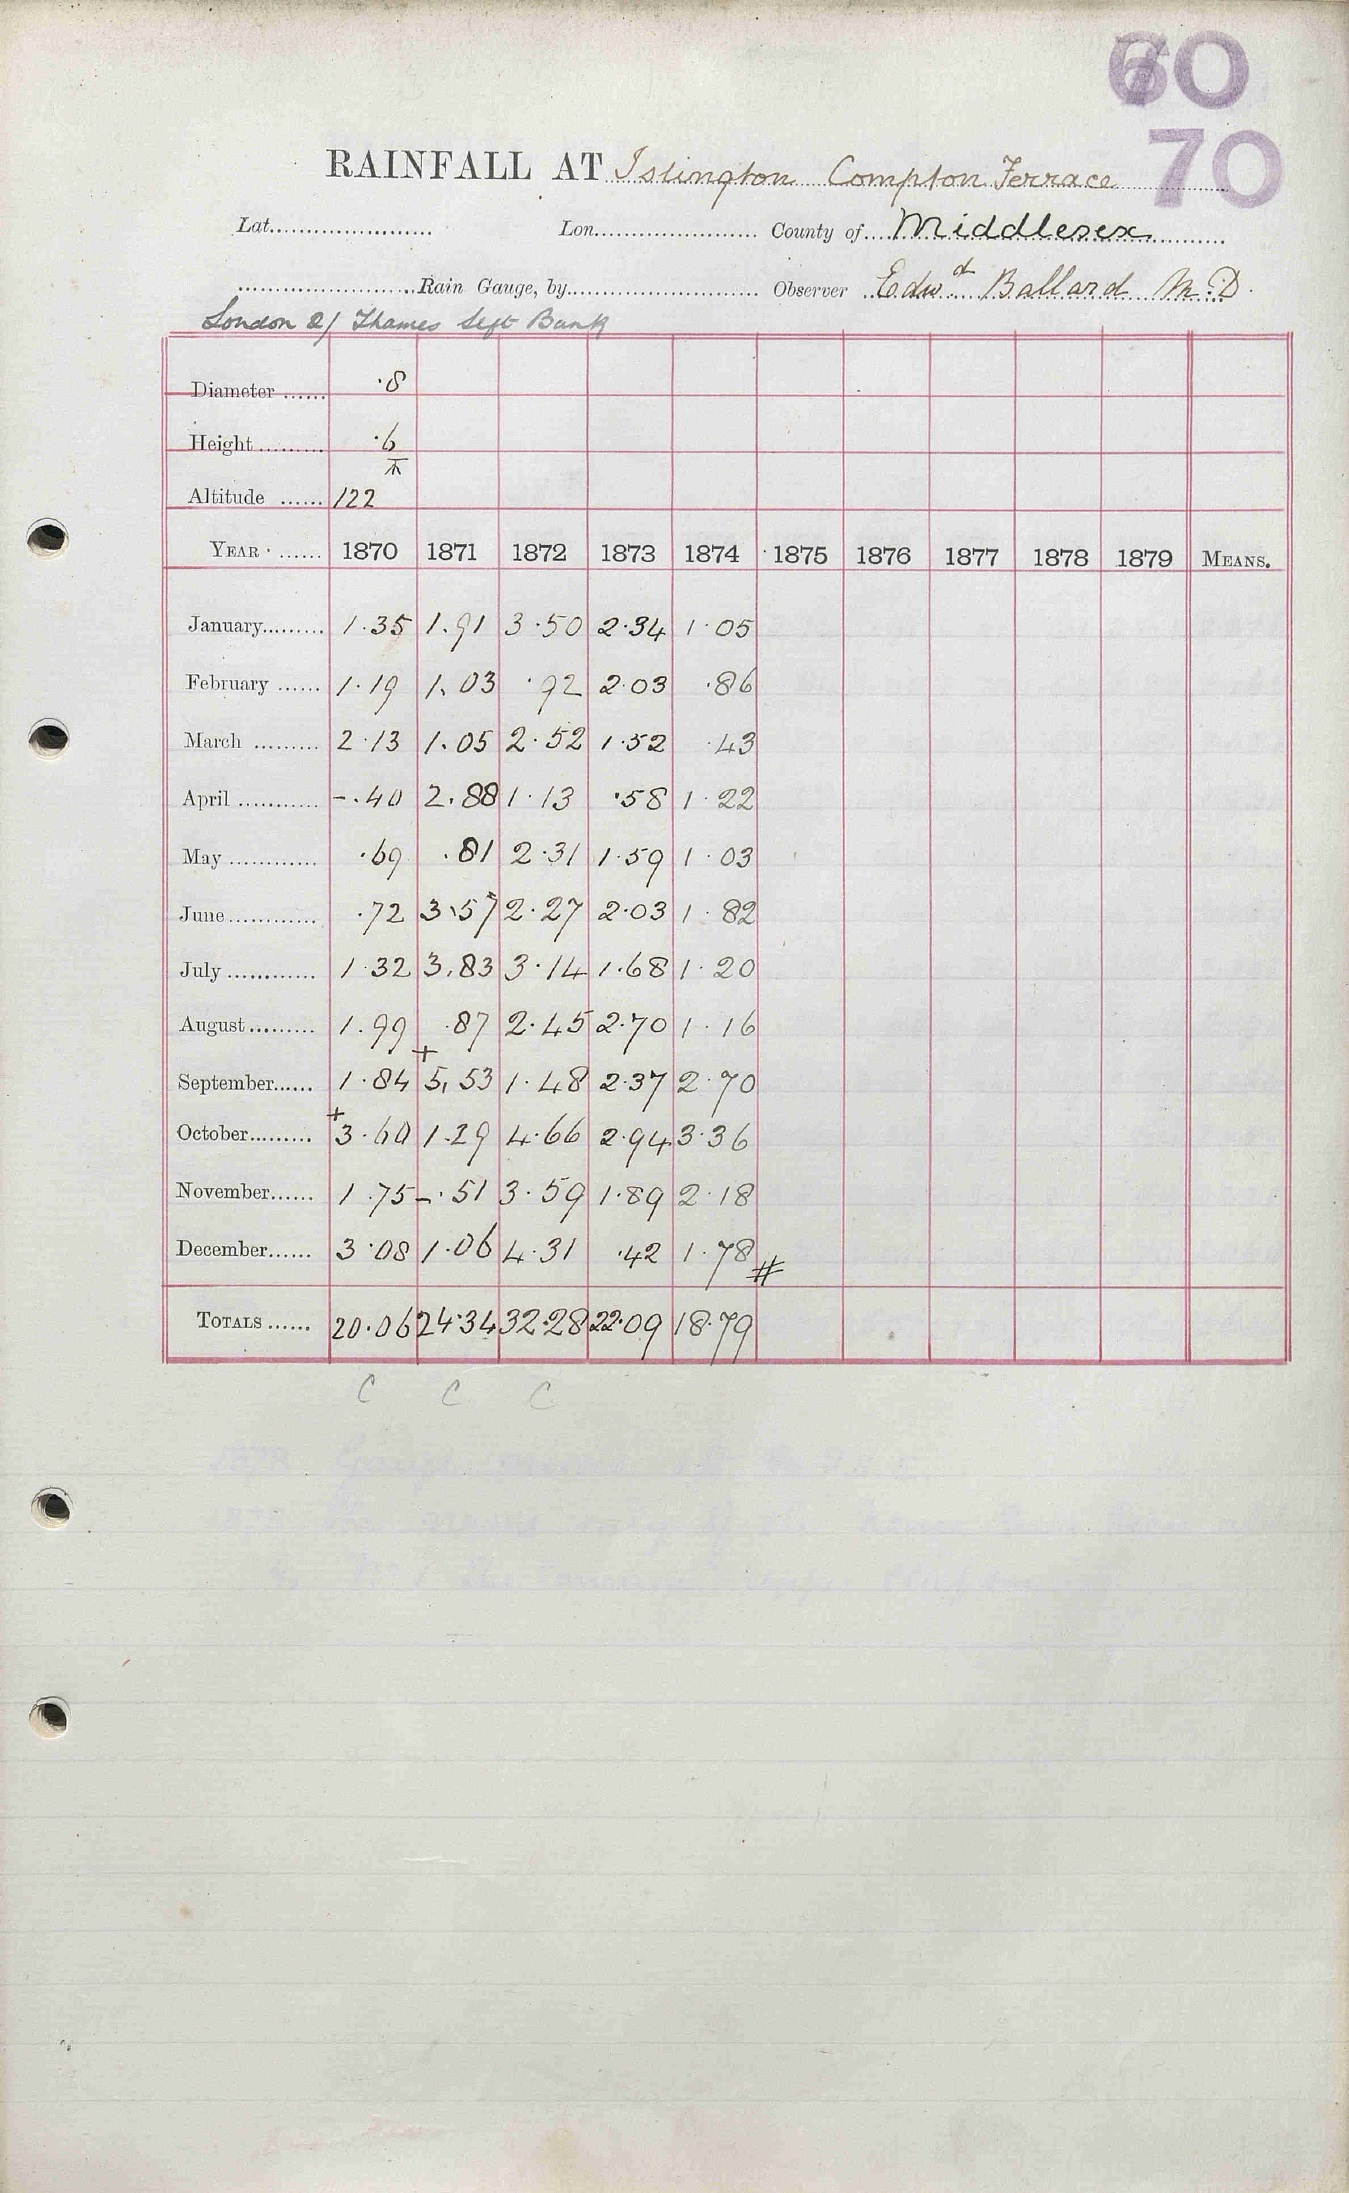 60
70
RAINFALL AT Islington Compton Terrace
Lat. Lon. County of Middlesex
Rain Gauge, by Observer Edwd Ballard M.D.
London 2/ Thames Left Bank
Diameter ·8
Height ·6
Altitude 122
YEAR 1870 1871 1872 1873 1874 1875 1876 1877 1878 1879 MEANS.
January 1·35 1.91 3·50 2·34 1·05
February 1·19 1.03 ·92 2·03 ·86
March 2·13 1.05 2·52 1·52 ·43
April -.40 2.88 1·13 ·58 1·22
May ·69 .81 2·31 1·59 1·03
June ·72 3.57 2·27 2·03 1·82
July 1·32 3.83 3·14 1·68 1·20
August 1.99 ·87 2·45 2·70 1·16
September 1·84 + 5.53 1·48 2·37 2·70
October + 3·60 1.29 4·66 2·94 3·36
November 1·75 -·51 3·59 1·89 2·18
December 3·08 1·06 4·31 ·42 1·78 #
TOTALS 20·06 24·34 32·28 22·09 18·79
C C C